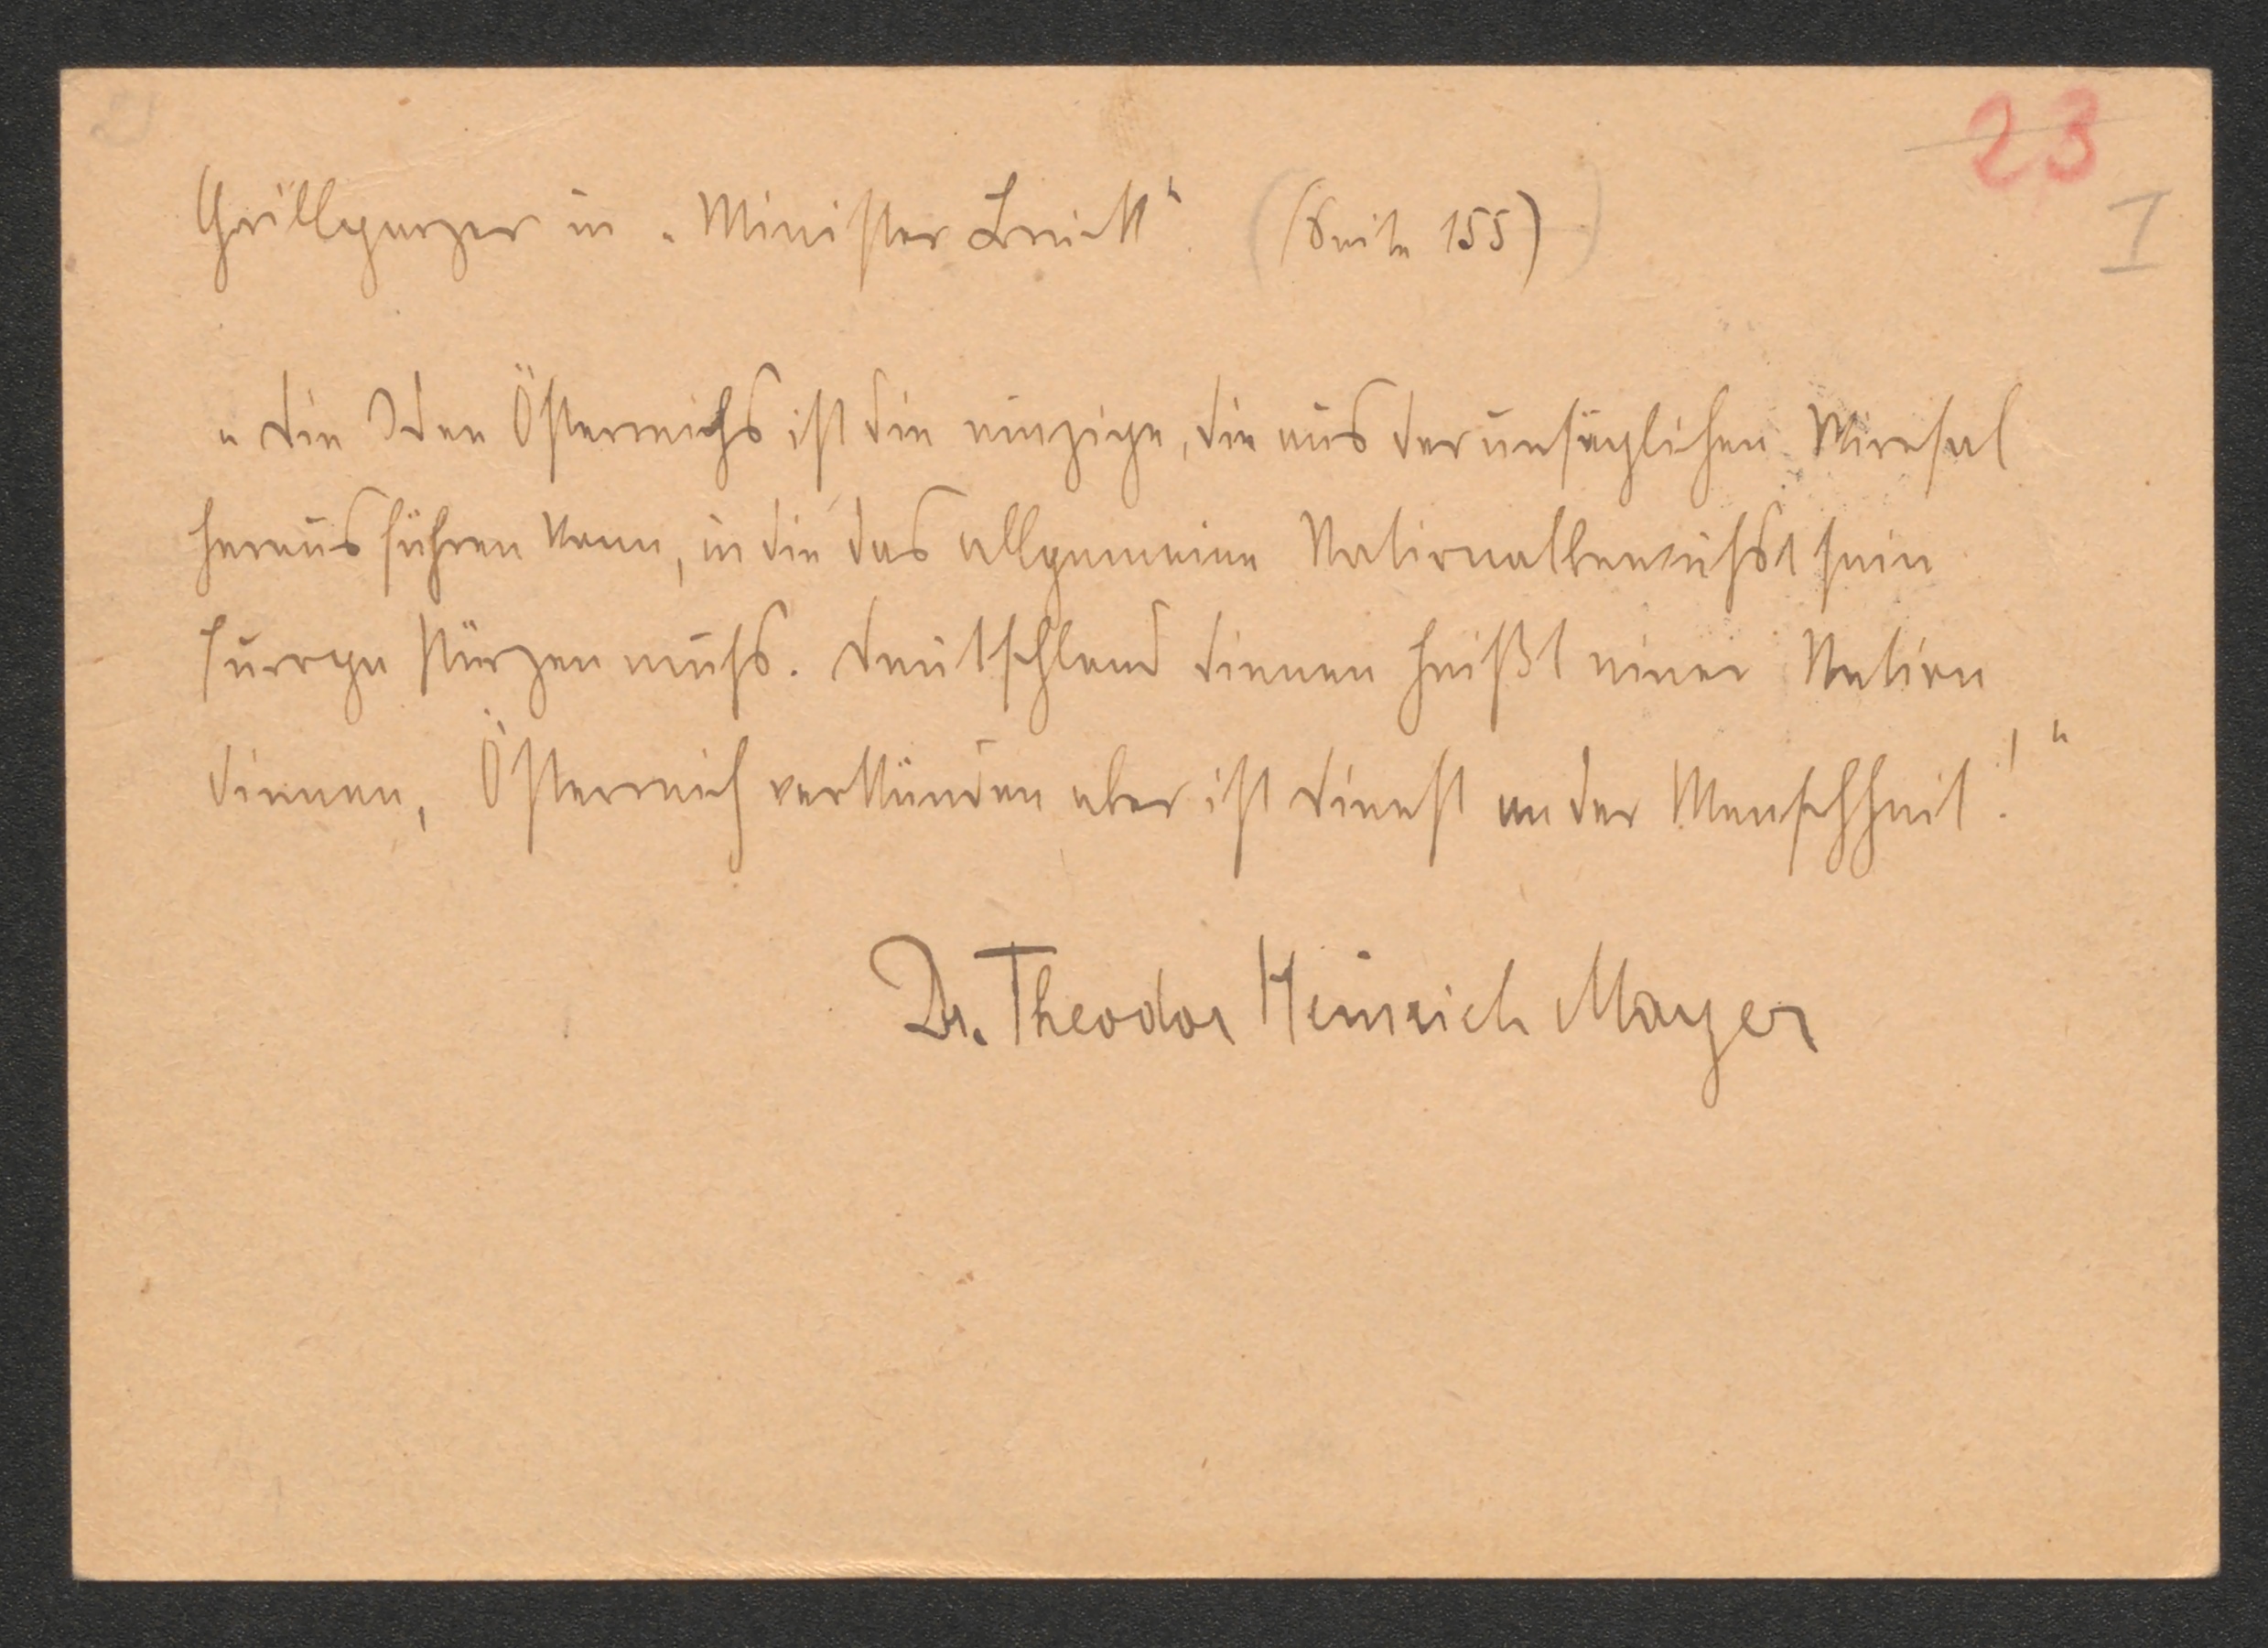 23
I
Grillparzer in „Minister Bruck“. (Seite 155)
„Die Idee Österreichs ist die einzige, die aus der unsäglichen Wirrsal
herausführen kann, in die das allgemeine Nationalbewußtsein
Europa stürzen muss. Deutschland dienen heißt einer Nation
dienen, Österreich verkünden aber ist Dienst an der Menschheit!“
Dr. Theodor Heinrich Mayer